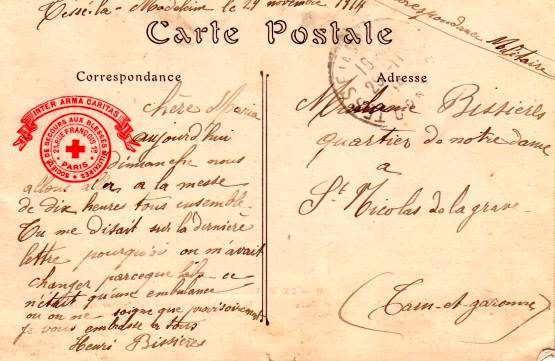 Tessé-la-Madeleine le 29 novembre 1914
Correspondance Militaire
Carte Postale
Correspondance
Adresse
INTER ARMA CARITAS
SOCIÉTÉ DE SECOURS AUX BLESSÉS MILITAIRES
21 RUE FRANÇOIS 1er
PARIS
chère Maria
aujourd'hui
dimanche nous
allons aller a la messe
de dix heures tous ensemble
Tu me disait sur la dernière
lettre pourquoi on m'avait
changer parceque
n'était qu'une embulance
ou on ne soigne que provisoirement
je vous embrasse a tous
Henri Bissières
Madame Bissières
quartier de notre dame
a
St Nicolas de la grave
(Tarn-et-garonne)